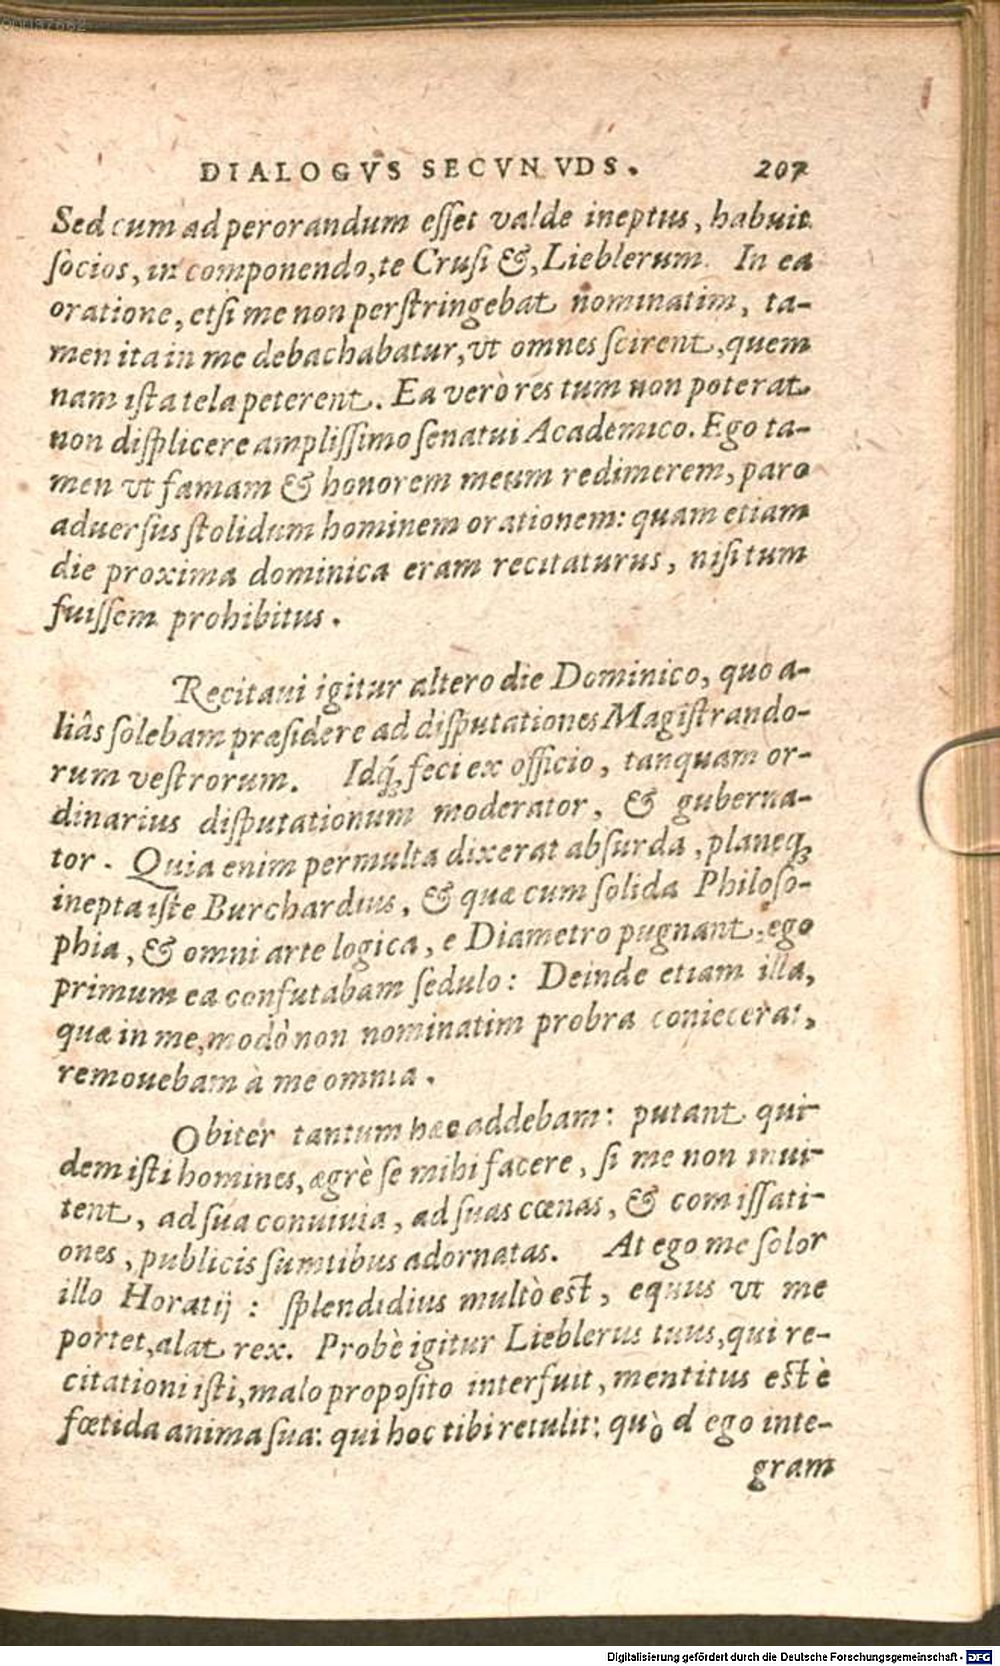 00037662
DIALOGVS SECVN VDS. 207
Sed cum ad perorandum esset valde ineptus, habuit
socios, in componendo, te Crusi &, Lieblerum. In ea
oratione, etsi me non perstringebat nominatim, ta-
men ita in me debachabatur, vt omnes scirent, quem
nam ista tela peterent. Ea verò res tum non poterat
non displicere amplissimo senatui Academico. Ego ta-
men vt famam & honorem meum redimerem, paro
aduersus stolidum hominem orationem: quam etiam
die proxima dominica eram recitaturus, nisi tum
fuissem prohibitus.
Recitaui igitur altero die Dominico, quo a-
liâs solebam præsidere ad disputationes Magistrando-
rum vestrorum. Idq́; feci ex officio, tanquam or-
dinarius disputationum moderator, & guberna-
tor. Quia enim permulta dixerat absurda, planeq;
inepta iste Burchardius, & quæ cum solida Philoso-
phia, & omni arte logica, e Diametro pugnant, ego
primum ea confutabam sedulo: Deinde etiam illa,
quæ in me, modò non nominatim probra coniecerat,
remouebam à me omnia.
Obiter tantum hæc addebam: putant qui-
dem isti homines, ægrè se mihi facere, si me non inui-
tent, ad sua conuiuia, ad suas cœnas, & comissati-
ones, publicis sumtibus adornatas. At ego me solor
illo Horatij: splendidius multò est, equus vt me
portet, alat rex. Probè igitur Lieblerus tuus, qui re-
citationi isti, malo proposito interfuit, mentitus est è
fœtida anima sua: qui hoc tibi retulit: quòd ego inte-
gram
Digitalisierung gefördert durch die Deutsche Forschungsgemeinschaft - DFG